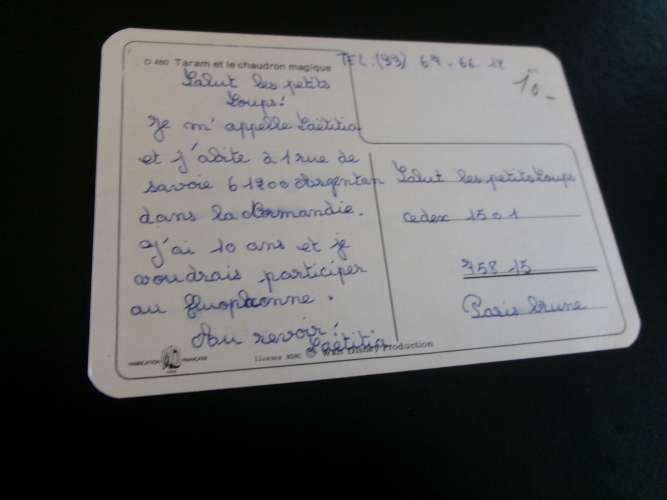 D 460 Taram et le chaudron magique
TEL.(33) 67-66-12
10-
Salut les petits
Loups!
Je m'appelle Laëtitia
et j'abite à 1 rue de
savoie 61200 Argentan
dans la Normandie.
J'ai 10 ans et je
voudrais participer
au fluophonne.
Au revoir!
Laëtitia
Salut les petits Loups
cedex 1501
758 15
Paris brune
FABRICATION FRANÇAISE
licence © Walt Disney Production